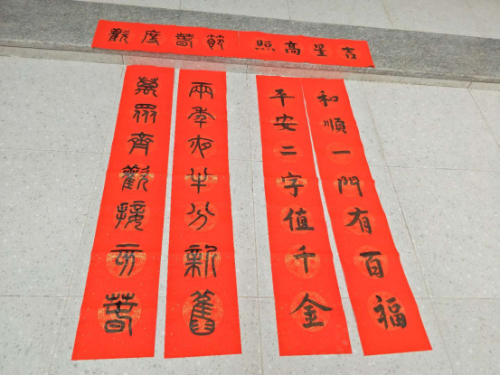 歡度春節
吉星高照
和順一門有百福
平安二字值千金
兩年夜半分新舊
萬眾齊歡接亥春